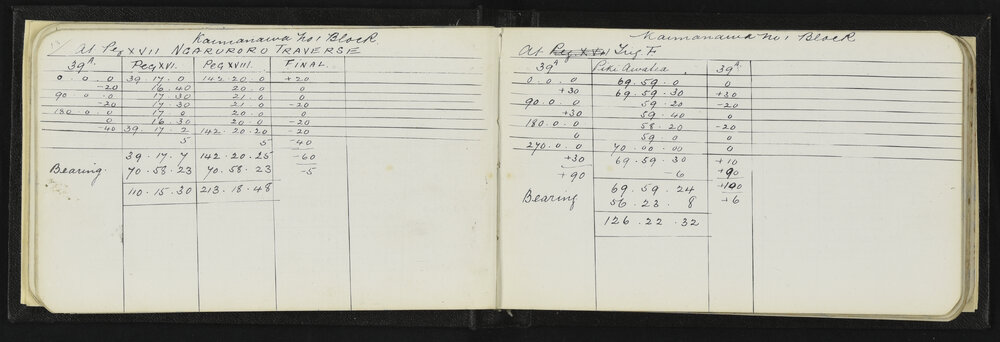 Kaimanawa No 1 Block
At Peg XVII NGARURORU TRAVERSE
39ᴬ. PEG XVI. PEG XVIII. FINAL.
0 . 0 . 0 39 . 17 . 0 142 . 20 . 0 +20
-20 16 . 40 20 . 0 0
90 . 0 . 0 17 . 30 21 . 0 0
-20 17 . 30 21 . 0 -20
180 . 0 . 0 17 . 0 20 . 0 0
0 16 . 30 20 . 0 -20
-40 39 . 17 . 2 142 . 20 . 20 -20
5 5 -40
39 . 17 . 7 142 . 20 . 25 -60
Bearing. 70 . 58 . 23 70 . 58 . 23 -5
110 . 15 . 30 213 . 18 . 48
Kaimanawa No 1 Block
At Peg Trig F
39ᴬ. 39ᴬ.
0 . 0 . 0 69 . 59 . 0 0
+30 69 . 59 . 30 +30
90 . 0 . 0 59 . 20 -20
+30 59 . 40 0
180 . 0 . 0 58 . 20 -20
0 59 . 0 0
270 . 0 . 0 70 . 00 . 00 0
+30 69 . 59 . 30 +10
+90 -6 +90
69 . 59 . 24 +100
Bearing 56 . 23 . 8 +6
126 . 22 . 32